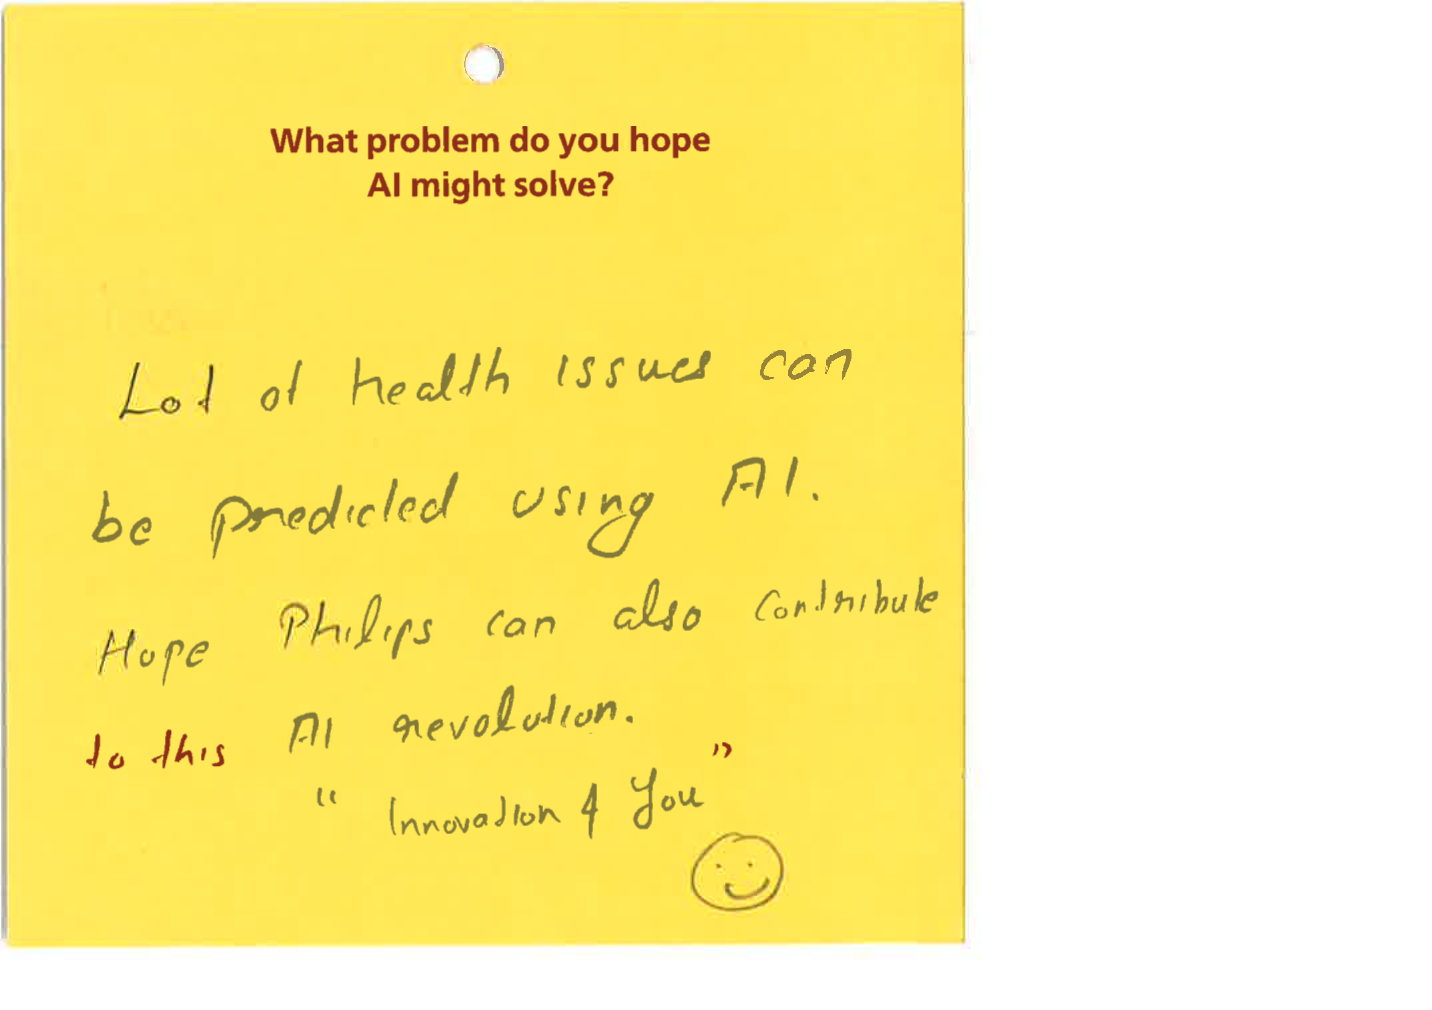 What problem do you hope
AI might solve?
Lot of health issues can
be predicted using AI.
Hope Philips can also contribute
to this AI revolution.
"Innovation 4 You"